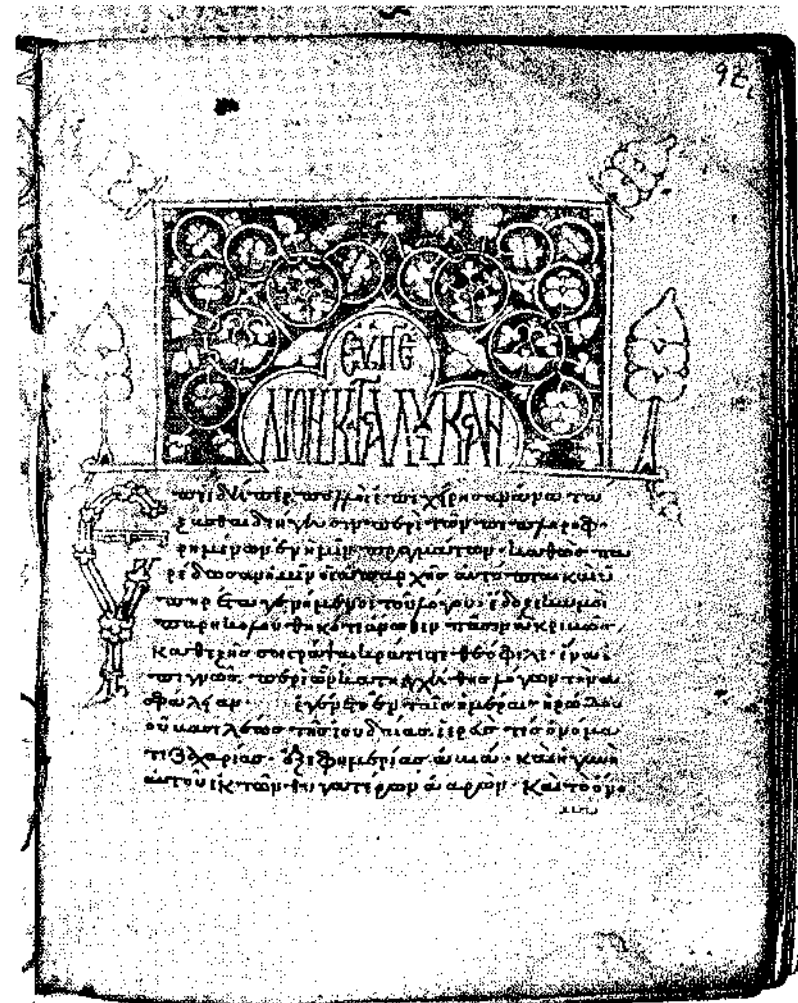 ΕΥΑΓΓΕ
ΛΙΟΝ ΚΤΑ ΛΥΚΑΝ
Ἐπειδήπερ πολλοὶ ἐπεχείρησαν ἀνατά
ξασθαι διήγησιν περὶ τῶν πεπληροφο
ρημένων ἐν ἡμῖν πραγμάτων· καθὼς πα
ρέδωσαν ἡμῖν οἱ ἀπαρχῆς αὐτόπται καὶ ὑ
πηρέται γενόμενοι τοῦ λόγου· ἔδοξε κἀμοὶ
παρηκολουθηκότι ἄνωθεν πᾶσιν ἀκριβῶς
καθεξῆς σοι γράψαι κράτιστε θεόφιλε· ἵνα ἐ
πιγνῶς περὶ ὧν κατηχήθης λόγων τὴν ἀ
σφάλειαν· ἐγένετο ἐν ταῖς ἡμέραις ἡρώδου
τοῦ βασιλέως τῆς ἰουδαίας ἱερεύς τις ὀνόμα
τι ζαχαρίας· ἐξ ἐφημερίας ἀβιά· καὶ ἡ γυνὴ
αὐτοῦ ἐκ τῶν θυγατέρων ἀαρών· καὶ τὸ ὄνο